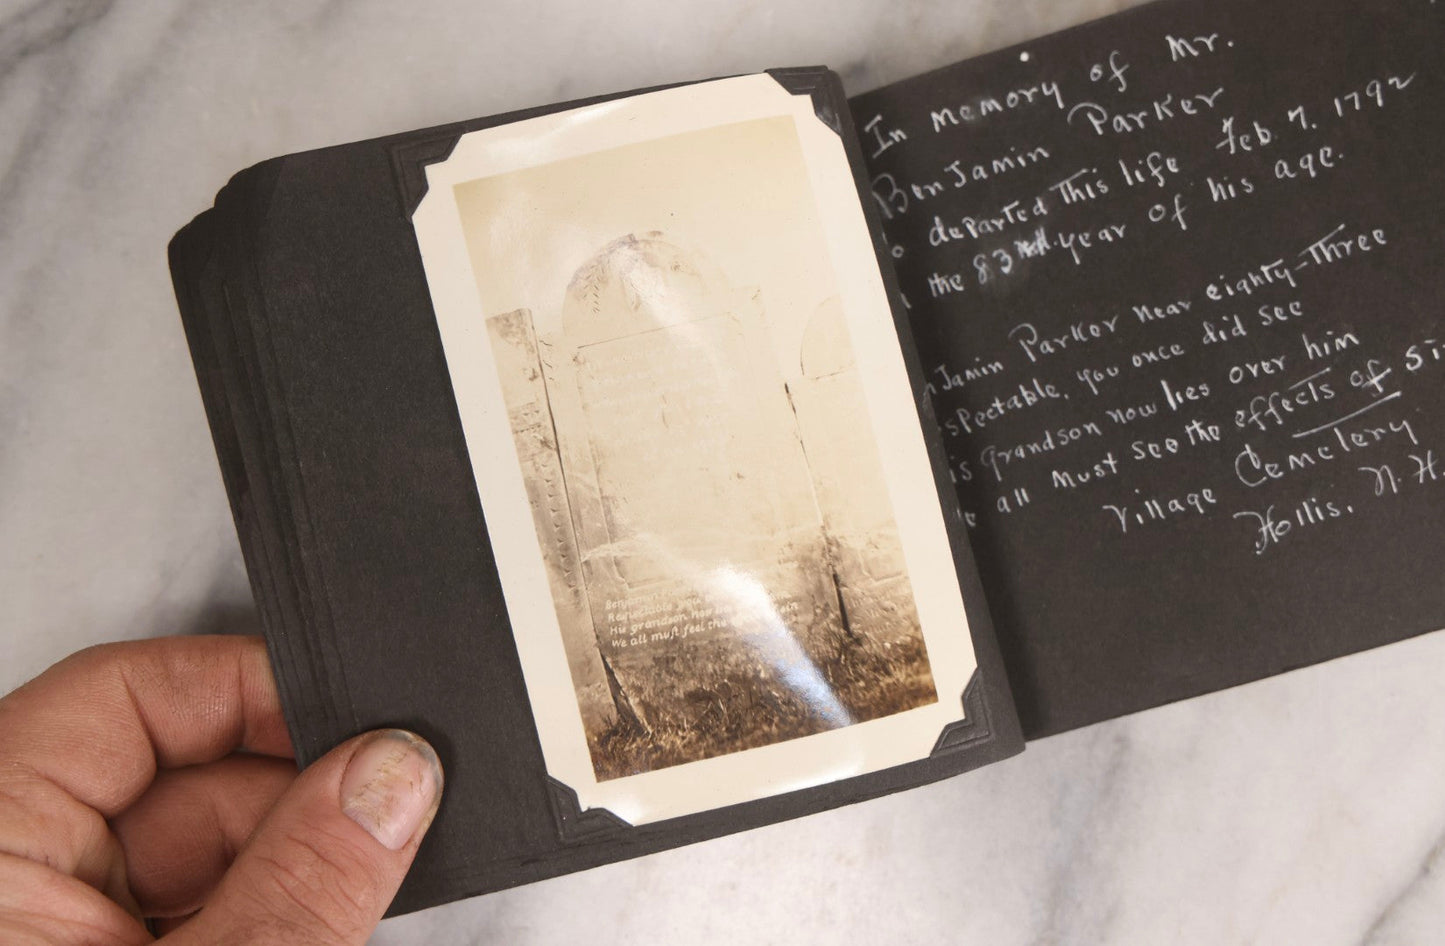 Benjamin
Respectable you
His grandson now
We all must feel the
In memory of Mr.
Benjamin Parker
departed This life Feb. 7. 1792
the 83 year of his age.
Jamin Parker near eighty-Three
spectable, you once did see
is grandson now lies over him
all must see the effects of Si
Village Cemetery
Hollis. N. H.